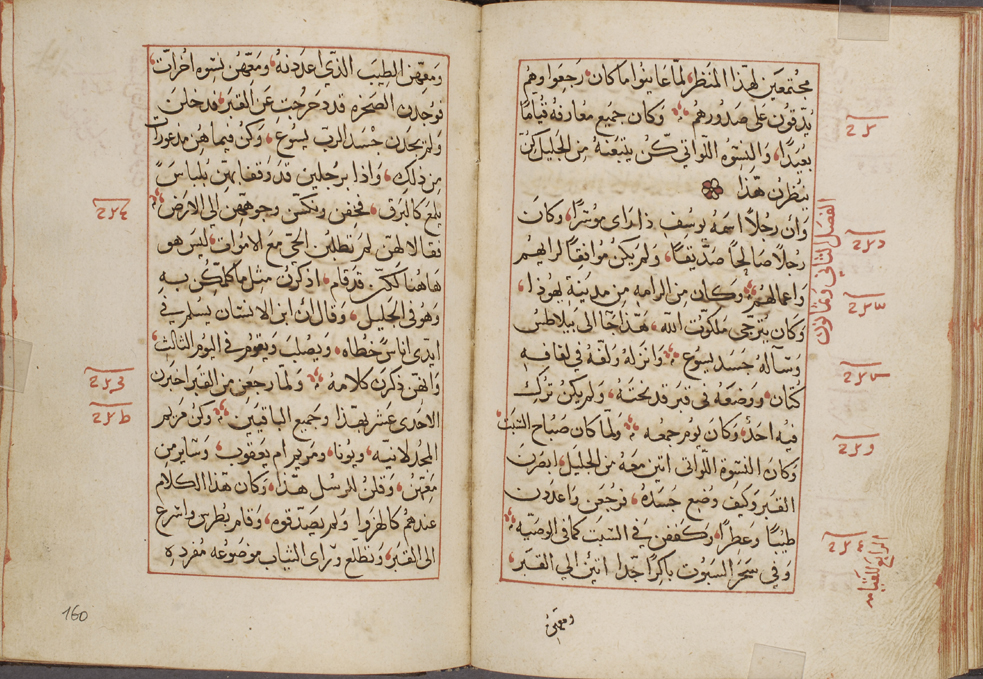 مجتمعين لهذا المنظر لما عاينوا ما كان رجعوا وهم
يدقون على صدورهم وكان جميع معارفه قياما
بعيدا والنسوه اللواتي كن يتبعنه من الجليل كن
ينظرن هذا
وان رجلا اسمه يوسف ذا راى موتزا وكان
رجلا صالحا صديقا ولم يكن موافقا لرايهم
واعمالهم وكان من الرامه من مدينة يهودا
وكان يترجى ملكوت الله هذا جا الى بيلاطس
وسآله جسد يسوع وانزله ولفه في لفافه
كتان ووضعه في قبر قد نحته ولم يكن ترك
فيه احد وكان يوم جمعه ولما كان صباح السبت
وكان النسوه اللواتي اتين معه من الجليل ابصرن
القبر وكيف وضع جسده فرجعن واعددن
طيبا وعطرا وكففن في السبت كما في الوصيه
وفي سحر السبوت باكرا جدا اتين الى القبر
ومعهن
الفصل الثاني وثمانون
الرابع للقيامه
ومعهن الطيب الذي اعددنه ومعهن نسوه اخرات
فوجدن الصخره قد دحرجت عن القبر فدخلن
ولم يجدن جسد الرب يسوع وكن فيما هن مذعورات
من ذلك واذا برجلين قد وقفا بهن بلباس
يلمع كالبرق فخفن ونكسن وجوههن الى الارض
فقالا لهن لم تطلبن الحي مع الاموات ليس هو
هاهنا لكن قد قام اذكرن مثل ما كلمكن به
وهو في الجليل وقال ان ابن الانسان يسلم في
ايدي اناس خطاه ويصلب ويقوم في اليوم الثالث
وانهن ذكرن كلامه ولما رجعن من القبر اخبرن
الاحدى عشر بهذا وجميع الباقين وكن مريم
المجدلانيه ويونا ومريم ام يعقوب وساير من
معهن وقلن للرسل هذا وكان هذا الكلام
عندهم كالهزوا ولم يصدقوه وقام بطرس واسرع
الى القبر وتطلع وراى الثياب موضوعه مفرده
160